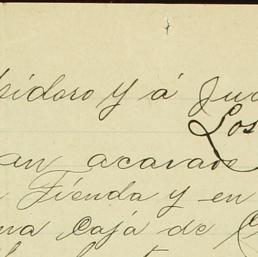 sidoro y á Jua
Los
en acavado
Tienda y en
na Caja de